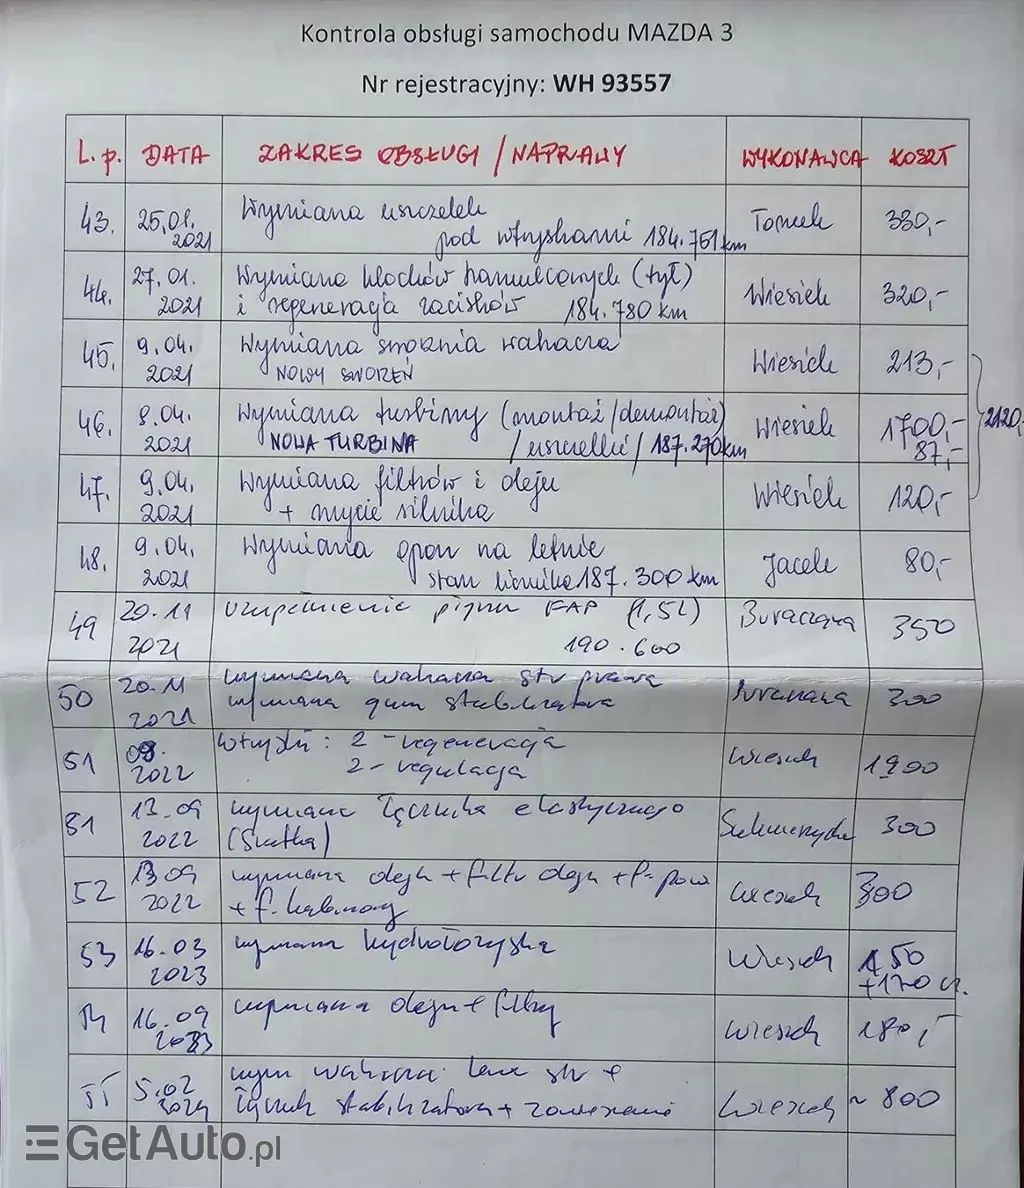 Kontrola obsługi samochodu MAZDA 3
Nr rejestracyjny: WH 93557
L.p. DATA ZAKRES OBSŁUGI / NAPRAWY WYKONAWCA KOSZT
43. 25.01. 2021 Wymiana uszczelek Tomek 330,-
pod wtryskami 184.761 km
44. 27.01. 2021 Wymiana klocków hamulcowych (tył) Wiesiek 320,-
i regeneracja zacisków 184.780 km
45. 9.04. 2021 Wymiana sworznia wahacza Wiesiek 213,-
NOWY SWORZEŃ
46. 8.04. 2021 Wymiana turbiny (montaż/demontaż) Wiesiek 1700,- 2120,-
NOWA TURBINA /uszczelki/ 187.270 km 87,-
47. 9.04. 2021 Wymiana filtrów i oleju Wiesiek 120,-
+ mycie silnika
48. 9.04. 2021 Wymiana opon na letnie Jacek 80,-
stan licznika 187.300 km
49 20.11 2021 uzupełnienie płynu FAP (1,5L) 350
190.600
50 20.11 2021 wymiana wahacza str prawa 300
wymiana gum stabilizatora
51 2022 wtryski: 2 - regeneracja Wiesiek 1900
2 - regulacja
51 13.09 2022 wymiana łącznika elastycznego 300
(Siatka)
52 13 09 2022 wymiana oleju + filtr oleju + f. pow Wiesiek 300
+ f. kabinowy
53 16.03 2023 wymiana Wiesiek 150
+170 cz.
54 16.09 2023 wymiana oleju + filtry Wiesiek 180,-
55 5.02 2024 wym wahacza lewa str + Wiesiek ~ 800
łącznik stabilizatora + zawieszenie
GetAuto.pl